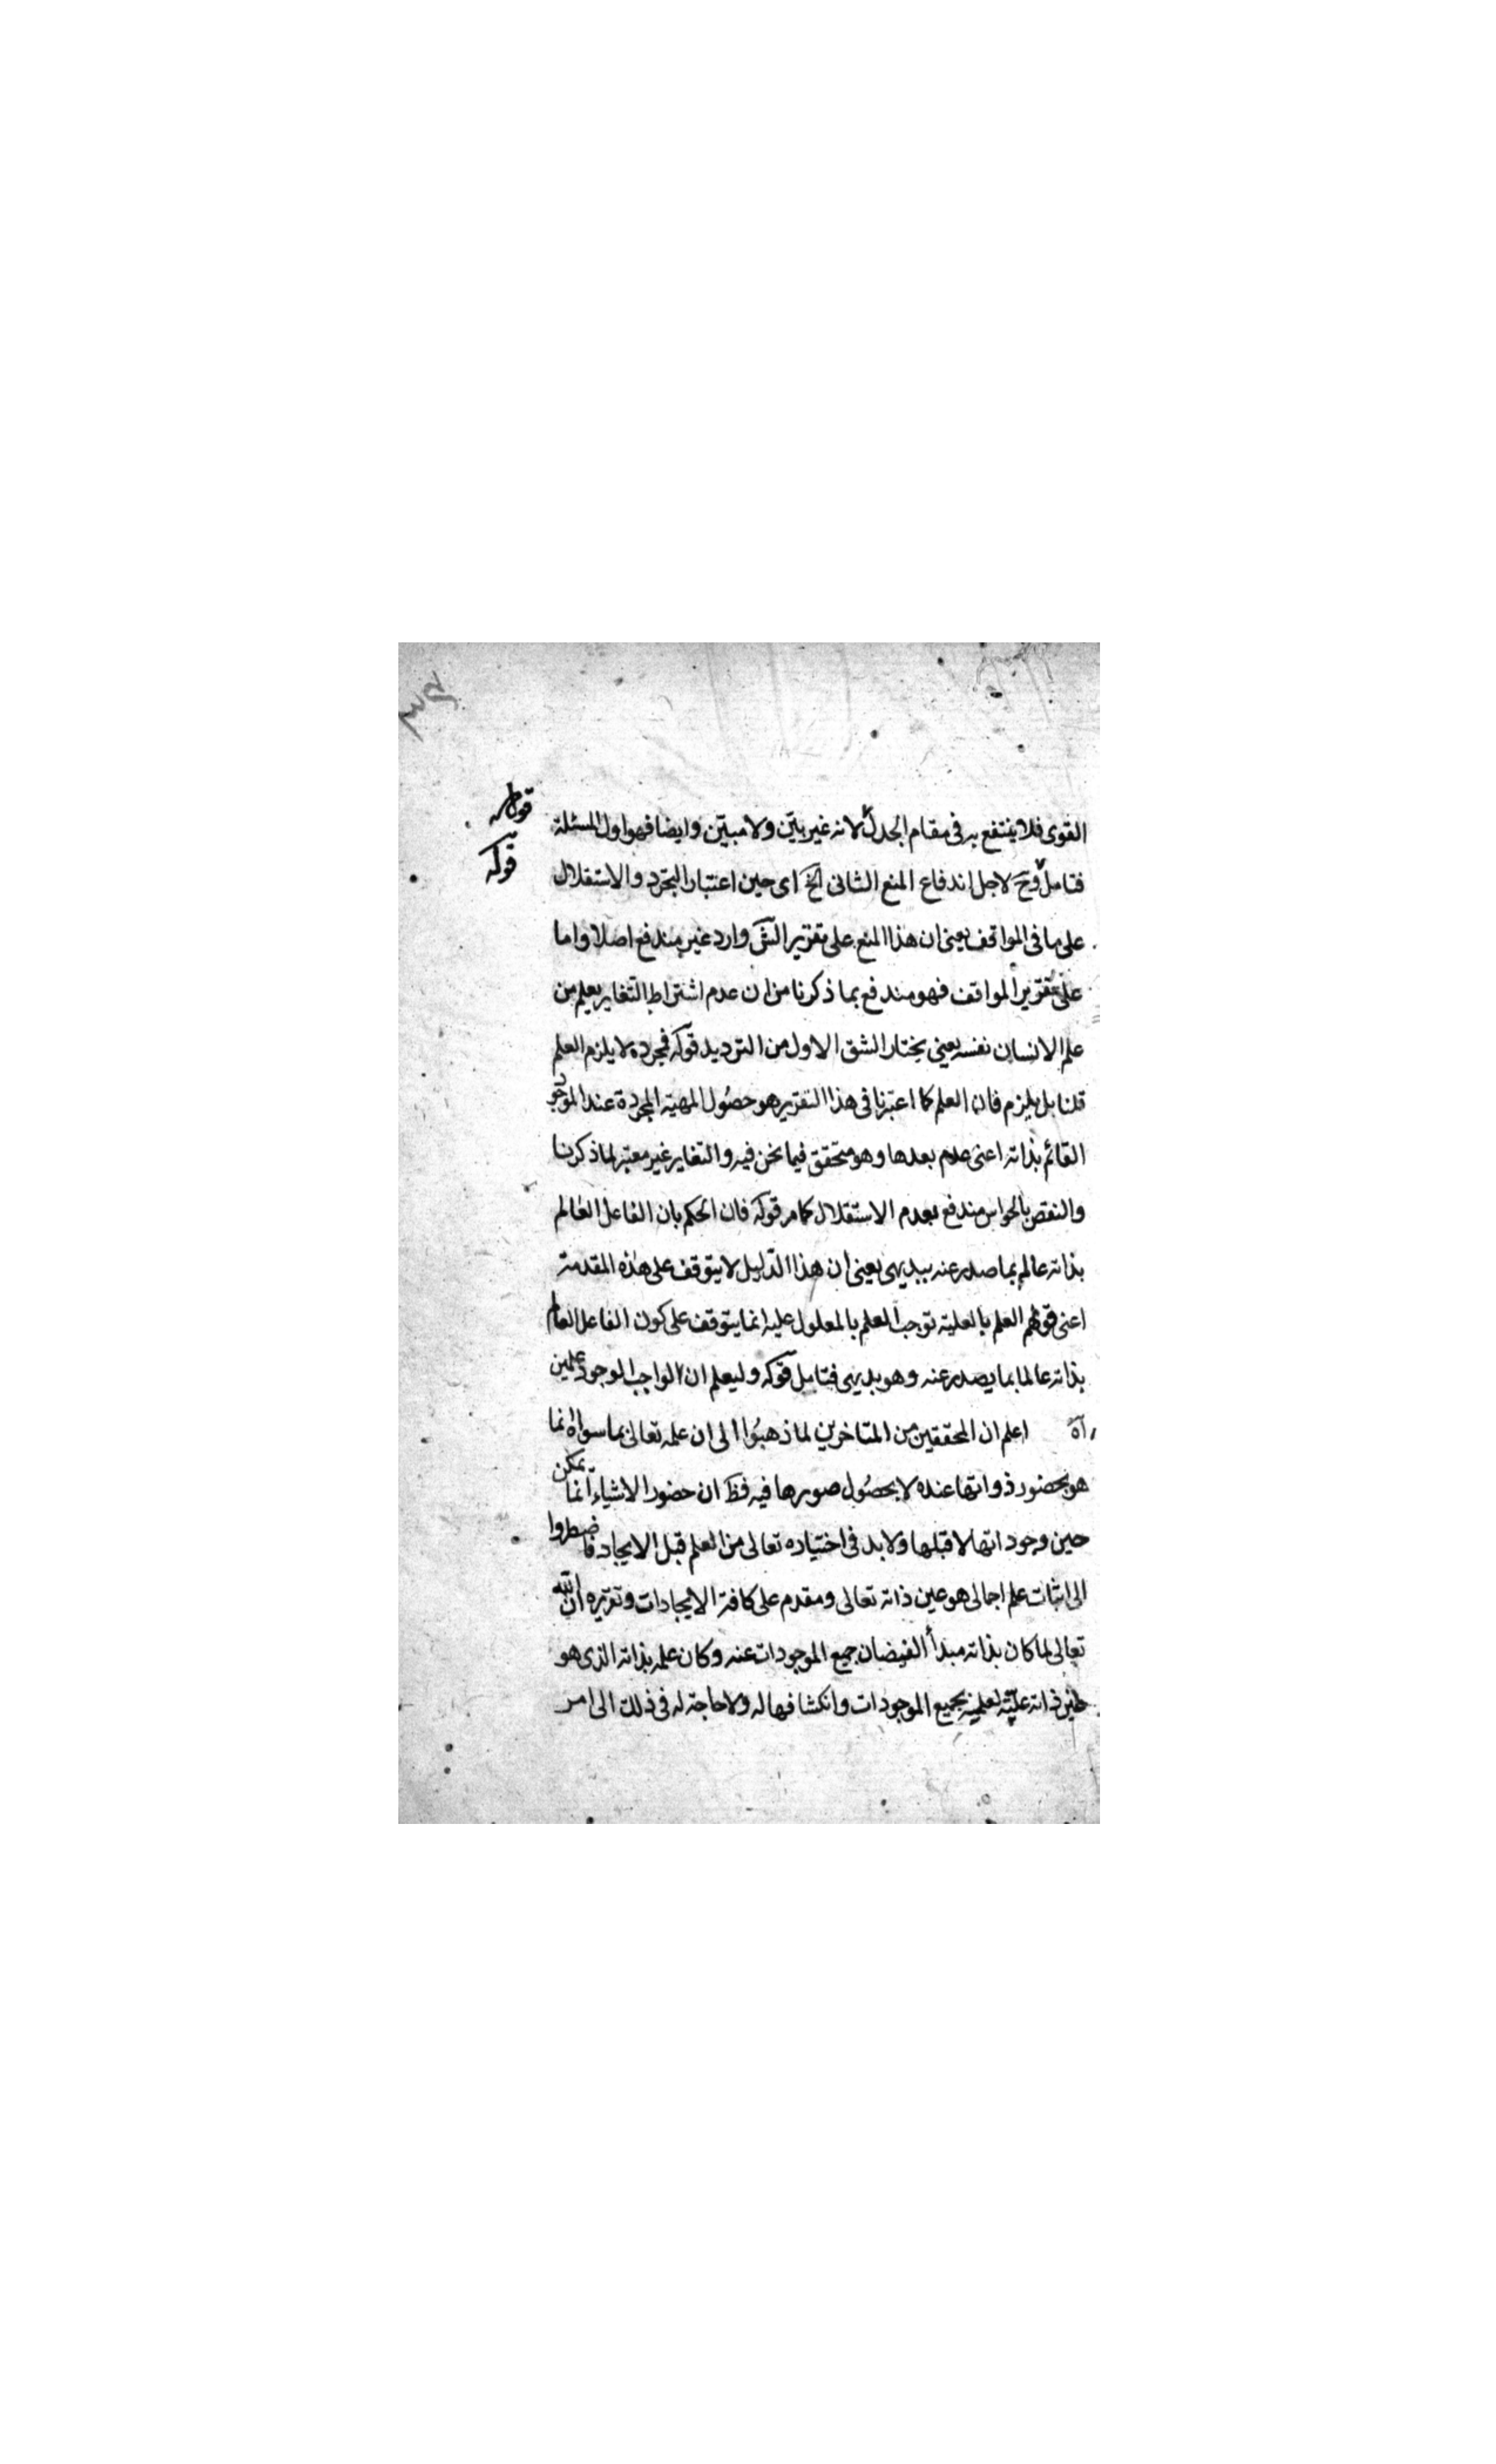 القوى فلا ينتفع به فى مقام الجدل لانه غير بيّن ولا مبيّن وايضا فهو اول المسئلة
قوله
قوله
فتامل وح لاجل اندفاع المنع الثانى الخ اى حين اعتبار التجرد والاستقلال
على ما فى المواقف يعنى ان هذا المنع على تقرير الش وارد غير مندفع اصلا واما
على تقرير المواقف فهو مندفع بما ذكرنا من ان عدم اشتراط التغاير يعلم من
علم الانسان نفسه يعنى يختار الشق الاول من الترديد قوله فمجرده لا يلزم العلم
قلنا بل يلزم فان العلم كما اعتبرنا فى هذا التقرير هو حصُول المهية المجردة عند الموجود
القائم بذاته اعنى عدم بعدها وهو متحقق فيما نحن فيه والتغاير غير معتبر لما ذكرنا
والنقض بالحواس مندفع بعدم الاستقلال كما مر قوله فان الحكم بان الفاعل العالم
بذاته عالم بما صدر عنه بديهى يعنى ان هذا الدّليل لا يتوقف على هذه المقدمة
اعنى قولهم العلم بالعلية توجب العلم بالمعلول عليه انما يتوقف على كون الفاعل العالم
بذاته عالما بما يصدر عنه وهو بديهى فتامل قوله وليعلم ان الواجب الوجود علمين
آه اعلم ان المحققين من المتاخرين لما ذهبُوا الى ان علمه تعالى بما سواه انما
هو بحضور ذواتها عنده لا بحصُول صورها فيه فظ ان حضور الاشياء انما يمكن
حين وجوداتها لا قبلها ولا بد فى اختياره تعالى من العلم قبل الايجاد فاضطروا
الى اثبات علم اجمالى هو عين ذاته تعالى ومقدم على كافة الايجادات وتقريره ان الله
تعالى لما كان بذاته مبدأ الفيضان جميع الموجودات عنه وكان علمه بذاته الذى هو
عين ذاته عليّة لعلمه بجميع الموجودات وانكشافها له ولا حاجة له فى ذلك الى امر